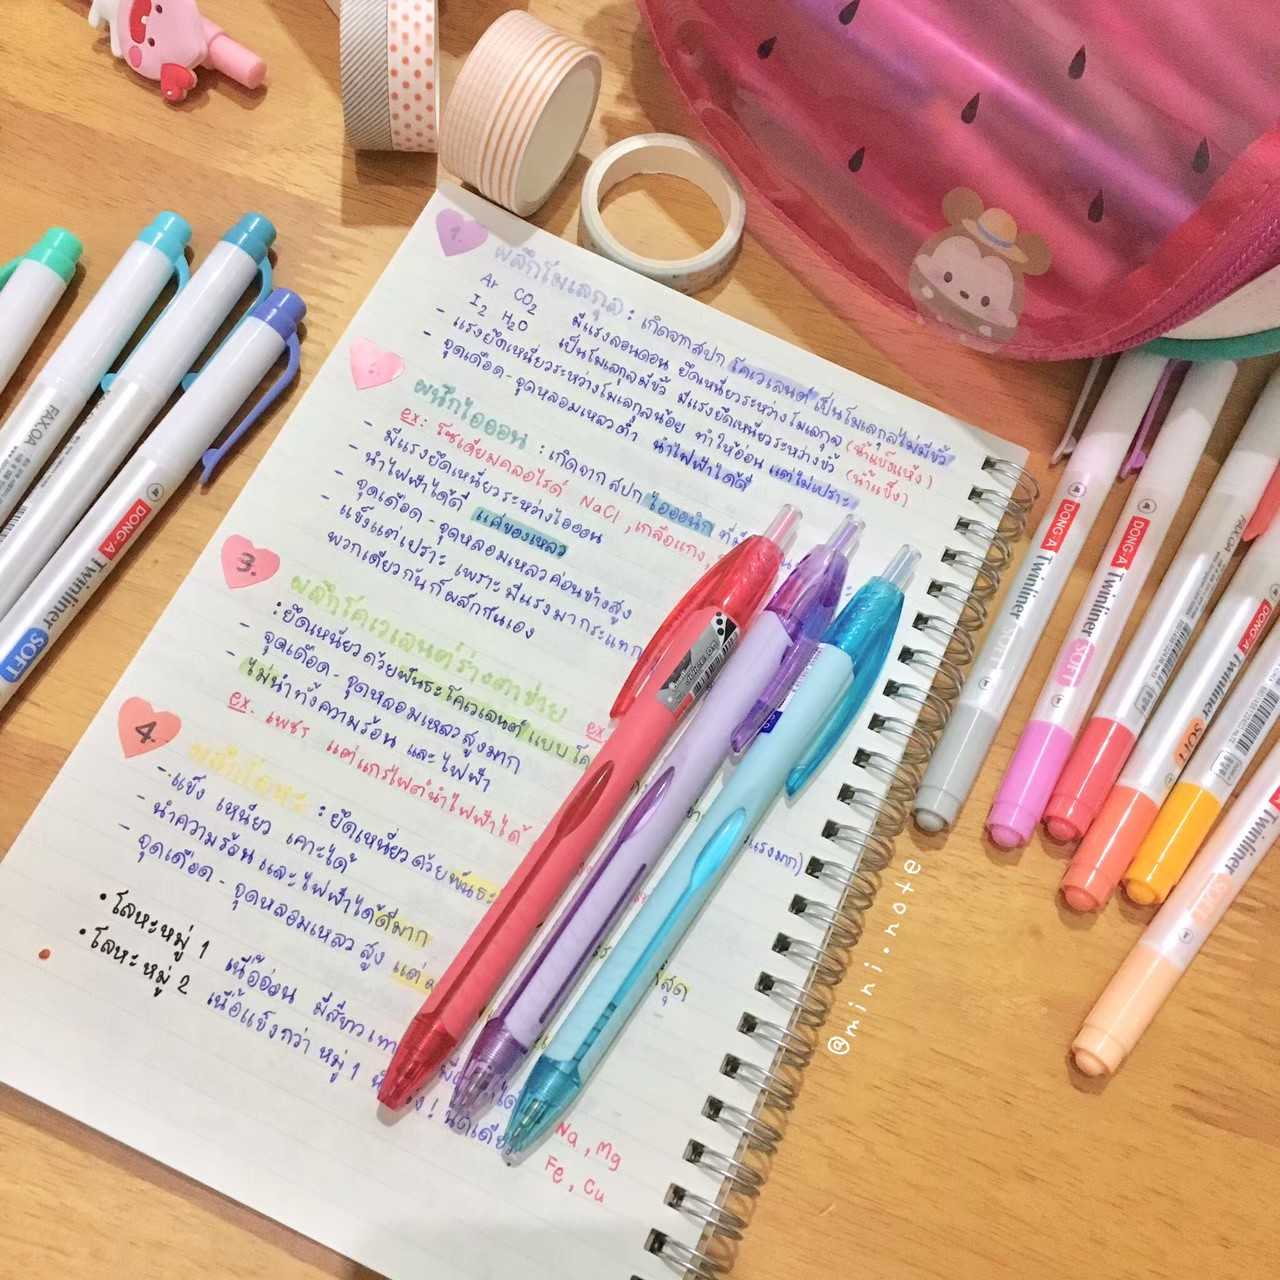 1.
ผลึกโมเลกุล : เกิดจากสปก โคเวเลนต์ เป็นโมเลกุลไม่มีขั้ว
Ar CO2
มีแรงลอนดอน ยึดเหนี่ยวระหว่างโมเลกุล (น้ำแข็งแห้ง)
I2 H2O
เป็นโมเลกุลมีขั้ว มีแรงยึดเหนี่ยวระหว่างขั้ว (น้ำแข็ง)
- แรงยึดเหนี่ยวระหว่างโมเลกุลน้อย ทำให้อ่อน แต่ไม่เปราะ
- จุดเดือด - จุดหลอมเหลวต่ำ นำไฟฟ้าได้ดี
ผนึกไอออน : เกิดจาก สปก ไอออนิก ที่
ex: โซเดียมคลอไรด์ NaCl , เกลือแกง,
- มีแรงยึดเหนี่ยวระหว่างไอออน
- นำไฟฟ้าได้ดี แค่ของเหลว
- จุดเดือด - จุดหลอมเหลวค่อนข้างสูง
แข็งแต่เปราะ เพราะมีแรงมากระแทก
พวกเดียวกันก็ผลักกันเอง
3.
ผลึกโคเวเลนต์ร่างตาข่าย
: ยึดเหนี่ยวด้วยพันธะโคเวเลนต์ แบบโค
- จุดเดือด - จุดหลอมเหลวสูงมาก
- ไม่นำทั้งความร้อน และ ไฟฟ้า
ex. เพชร แต่แกรไฟต์นำไฟฟ้าได้
ex
4.
ผลึกโลหะ : ยึดเหนี่ยวด้วยพันธะ
- แข็ง เหนียว เคาะได้
- นำความร้อน และ ไฟฟ้าได้ดีมาก
- จุดเดือด - จุดหลอมเหลว สูง แต่
แรงมาก)
ที่สุด
• โลหะหมู่ 1 เนื้ออ่อน มีสีขาวเทา
• โลหะหมู่ 2 เนื้อแข็งกว่า หมู่ 1
Na , Mg
Fe , Cu
DONG-A Twinliner SOFT
DONG-A Twinliner SOFT
DONG-A Twinliner SOFT
DONG-A Twinliner SOFT
DONG-A Twinliner
Twinliner SOFT
@mini.note